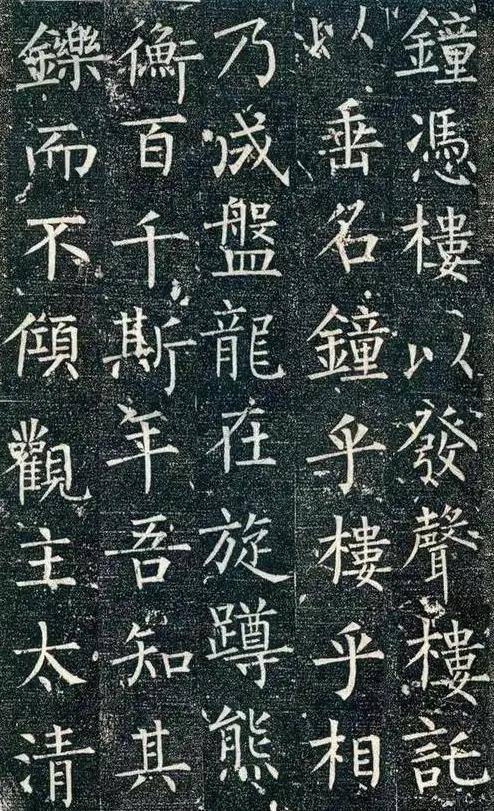 鐘憑樓以發聲樓託
以垂名鐘乎樓乎相
乃成盤龍在旋蹲熊
衡百千斯年吾知其
鑠而不傾觀主太清